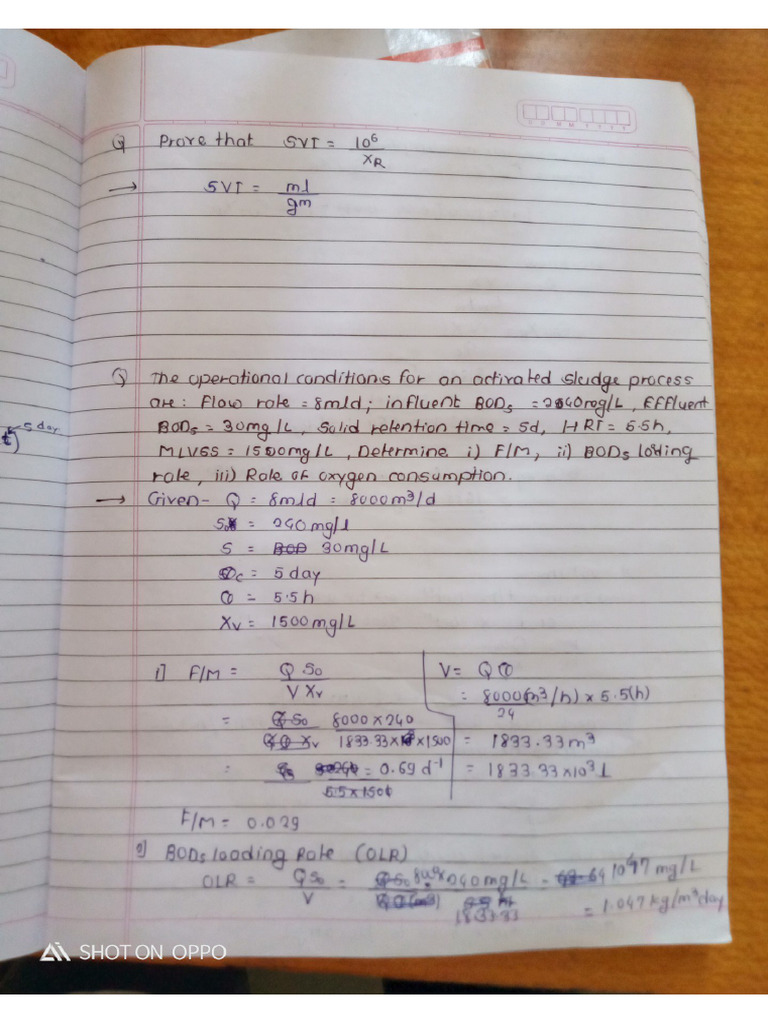 Q Prove that SVI = 10⁶ / X_R
→ SVI = ml / gm
Q The operational conditions for an activated sludge process
are: Flow rate = 8mld; influent BOD₅ = 240mg/L, Effluent
BOD₅ = 30mg/L, Solid retention time = 5d, HRT = 5.5h,
5 day
MLVSS = 1500mg/L, Determine i) F/M, ii) BOD₅ loding
rate, iii) Rate of oxygen consumption.
→ Given- Q = 8mld = 8000m³/d
S₀ = 240 mg/l
S = 30mg/L
Θc = 5 day
Θ = 5.5h
Xv = 1500 mg/L
1] F/M = Q S₀ / V Xv
V = Q Θ
= 8000 (m³/h) × 5.5(h) / 24
= 8000×240 / 1833.33× ×1500
= 1833.33m³
= 0.69 d⁻¹
= 1833.33×10³ l
5.5×1500
F/M = 0.029
2) BOD₅ loading Rate (OLR)
OLR = QS₀ / V = 240mg/L / 1833.33 = 1047 mg/L
= 1.047 kg/m³day
SHOT ON OPPO